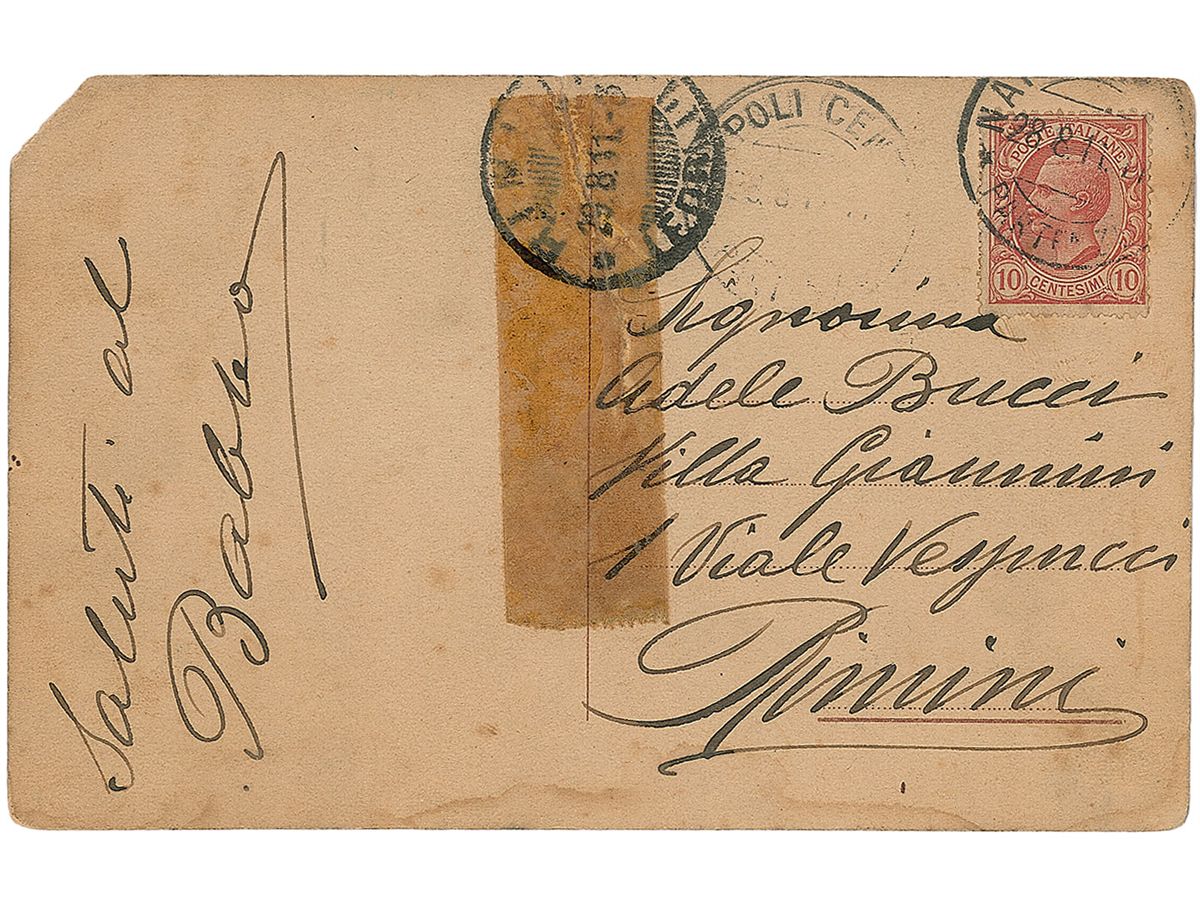 Saluti al
Babbo
29.8.11-
POLI (CEN
NAP
POSTE ITALIANE
10 CENTESIMI 10
Signorina
Adele Bucci
Villa Giannini
1 Viale Vespucci
Rimini